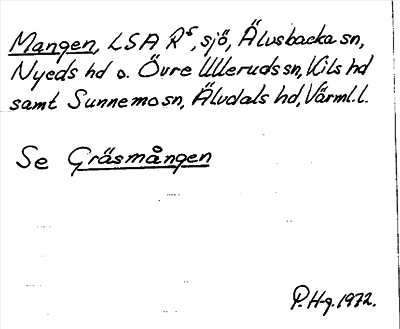 Mangen, LSA R⁵, sjö, Älvsbacka sn,
Nyeds hd o. Övre Ulleruds sn, Kils hd
samt Sunnemo sn, Älvdals hd, Värml. l.
Se Gräsmången
P. H-g. 1972.